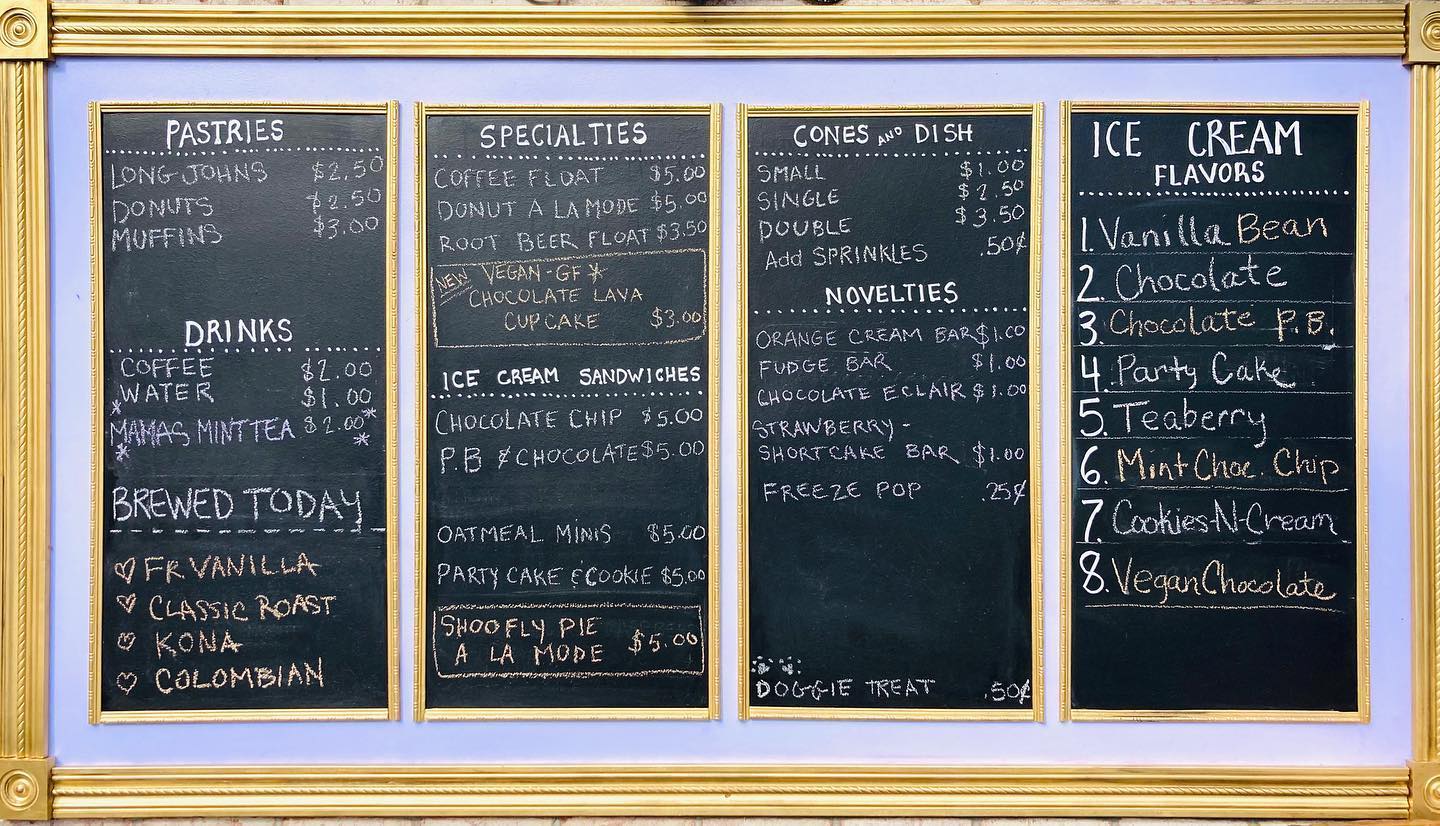 PASTRIES
LONG JOHNS $2.50
DONUTS $2.50
MUFFINS $3.00
DRINKS
COFFEE $2.00
WATER $1.00
*MAMAS MINT TEA $2.00*
* *
BREWED TODAY
FR. VANILLA
CLASSIC ROAST
KONA
COLOMBIAN
SPECIALTIES
COFFEE FLOAT $5.00
DONUT A LA MODE $5.00
ROOT BEER FLOAT $3.50
NEW VEGAN-GF *
CHOCOLATE LAVA
CUPCAKE $3.00
ICE CREAM SANDWICHES
CHOCOLATE CHIP $5.00
P.B & CHOCOLATE $5.00
OATMEAL MINIS $5.00
PARTY CAKE & COOKIE $5.00
SHOOFLY PIE
A LA MODE $5.00
CONES AND DISH
SMALL $1.00
SINGLE $2.50
DOUBLE $3.50
Add SPRINKLES .50¢
NOVELTIES
ORANGE CREAM BAR $1.00
FUDGE BAR $1.00
CHOCOLATE ECLAIR $1.00
STRAWBERRY -
SHORTCAKE BAR $1.00
FREEZE POP .25¢
DOGGIE TREAT .50¢
ICE CREAM
FLAVORS
1. Vanilla Bean
2. Chocolate
3. Chocolate P.B.
4. Party Cake
5. Teaberry
6. Mint Choc. Chip
7. Cookies-N-Cream
8. Vegan Chocolate